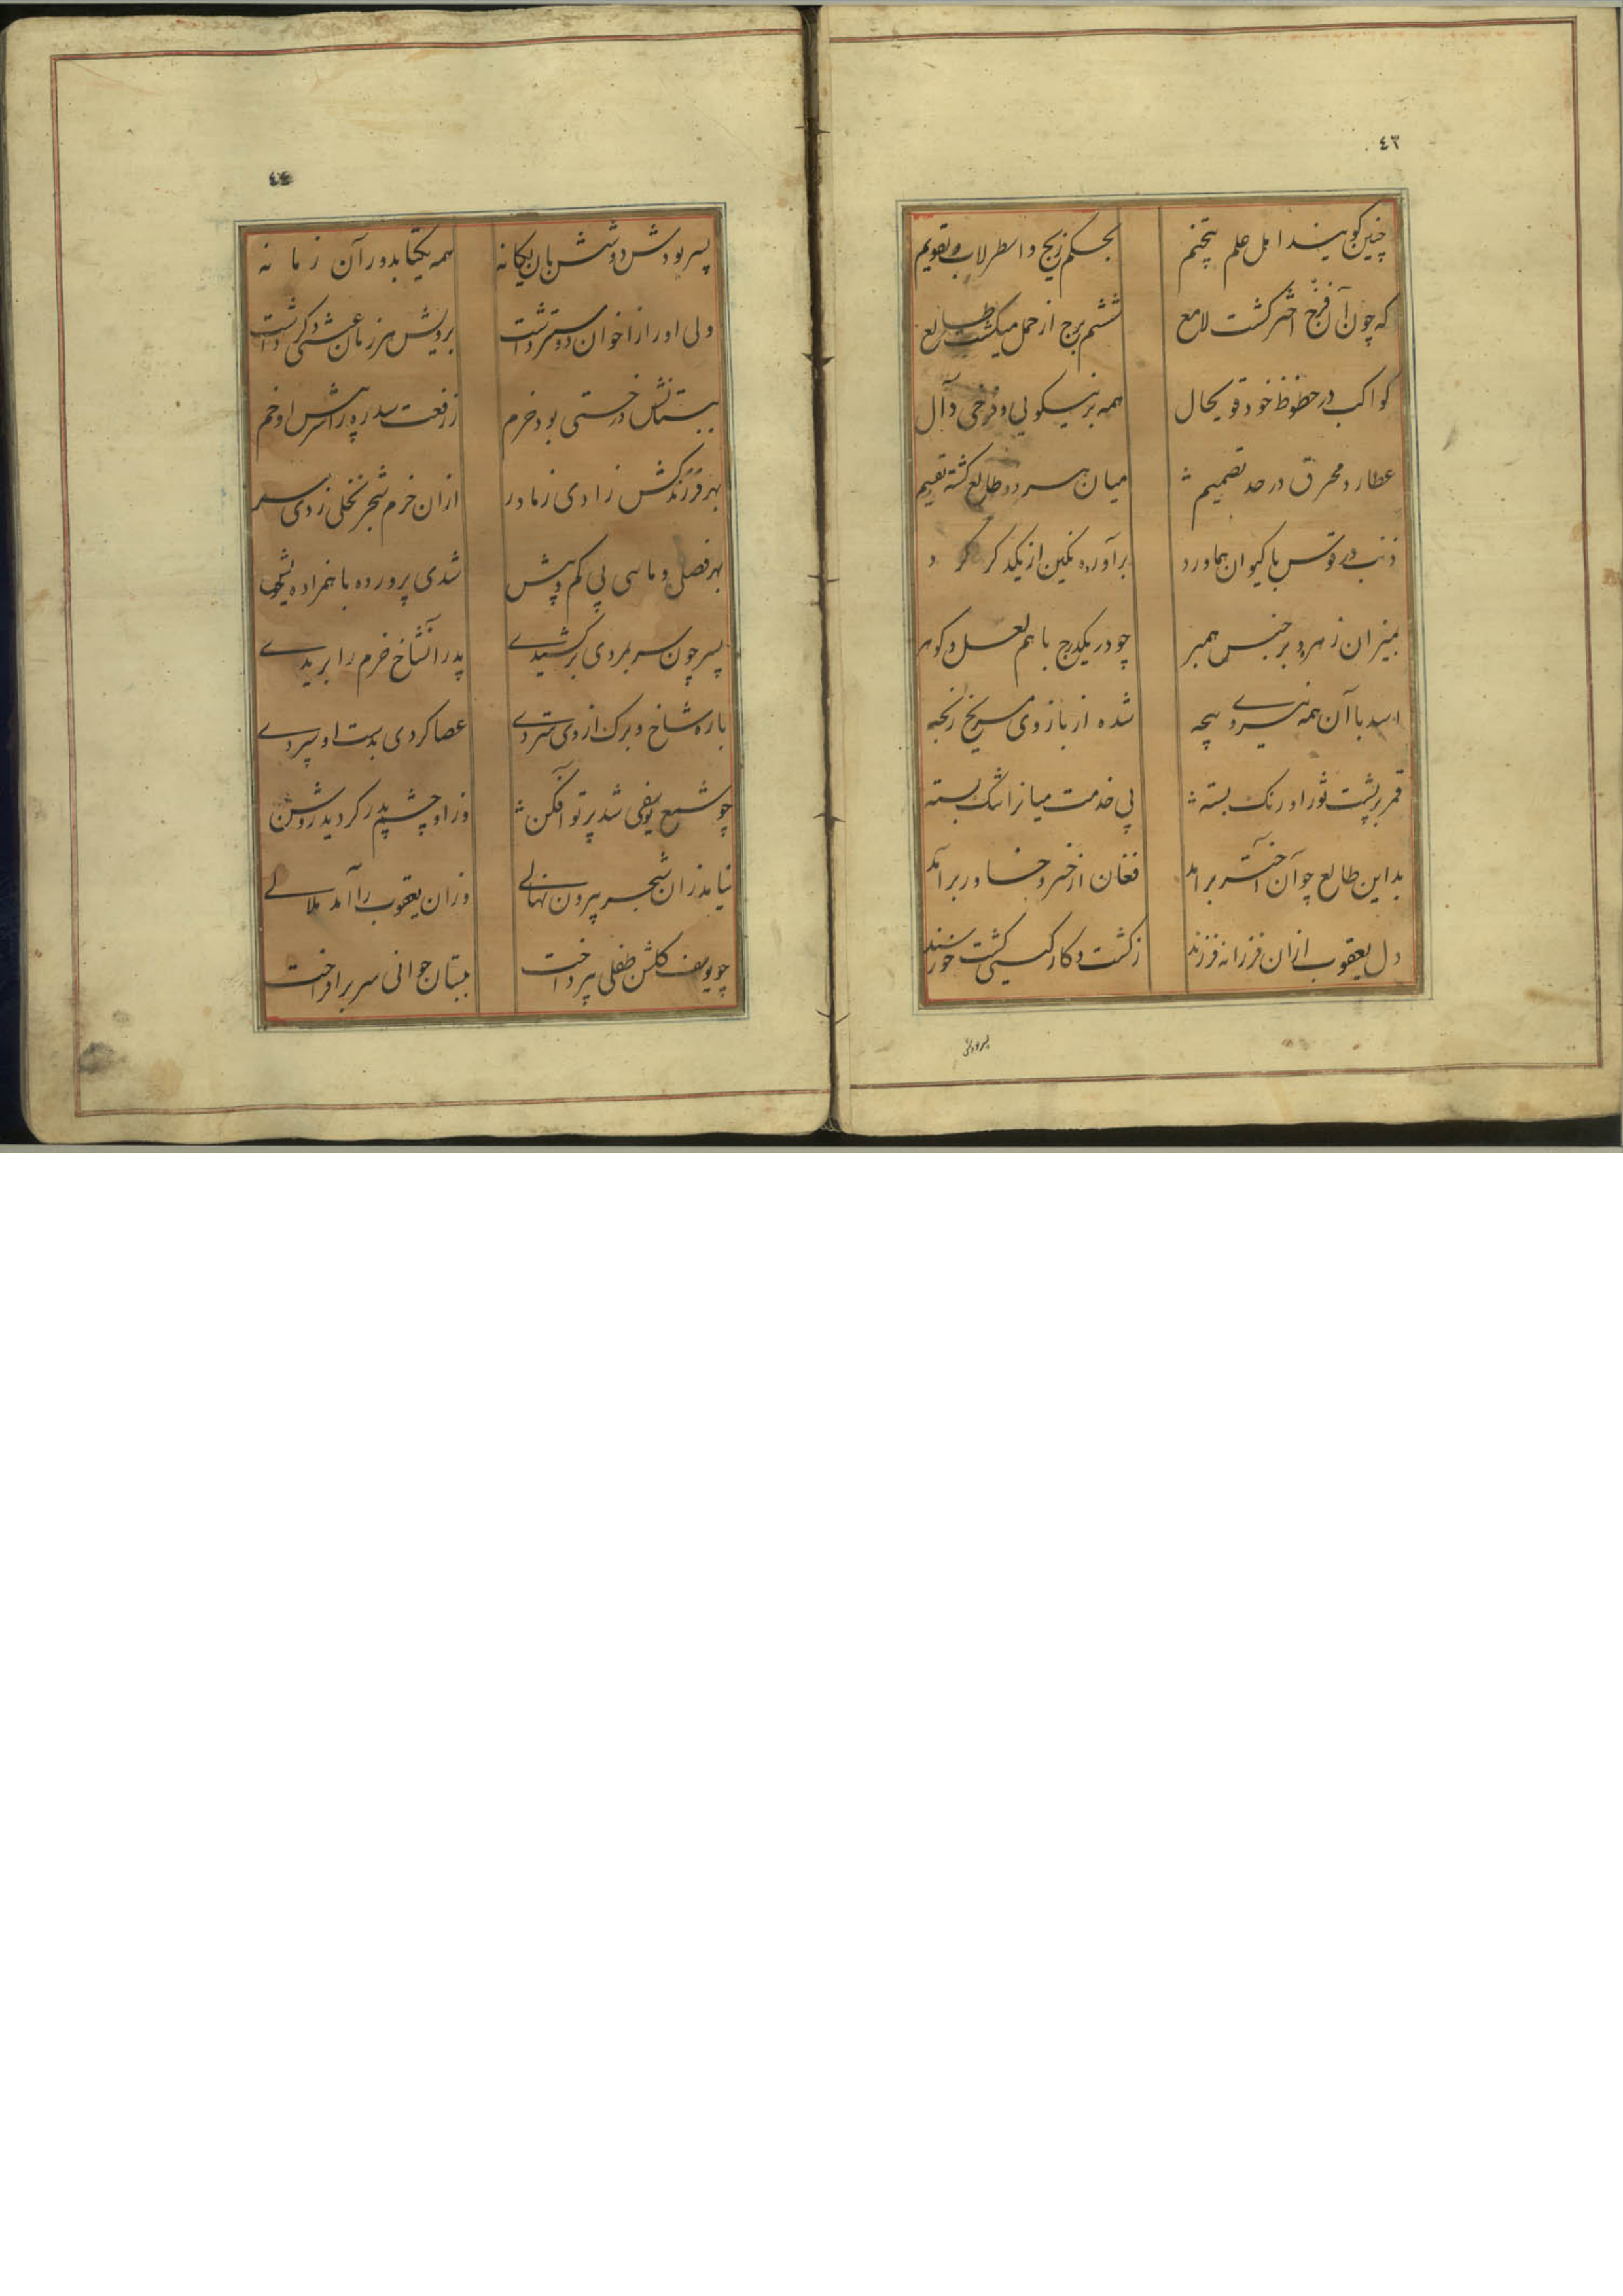 ٤٣
چنین کویند اهل علم تنجیم بحکم زیج و اسطرلاب و تقویم
که چون آن فرخ اختر کشت لامع ششم برج از حمل میکشت طالع
کواکب در حظوظ خود قویحال همه بر نیکویی و فرخی دال
عطارد محرق در حد تصمیم میان هر دو طالع کشته تقسیم
ذنب در قوس با کیوان هماورد برآورده بکین از یکدکر کرد
بمیزان زهره و برجیس همبر چو در یکدرج با هم لعل و کوهر
اسد با آن همه نیروی پنجه شده از بازوی مریخ رنجه
قمر بر پشت ثور اورنک بسته پی خدمت میانرا تنک بسته
بداین طالع چو آن اختر برامد فغان از خسرو خاور برآمد
دل یعقوب ازان فرزانه فرزند زکشت و کار کیتی کشت خورسند
پسر بودش
٤٤
پسر بودش دو شش بان یکانه همه یکتا بدور آن زمانه
ولی او را از اخوان دوستر داشت برویش هر زمان عشقی دکر داشت
ببستانش درختی بود خرم ز رفعت سدره را سر پیش او خم
بهر فرزندکش زادی ز مادر ازان خرم شجر نخلی زدی سر
بهر فصلی و ماهی بی کم و بیش شدی پرورده با همزاده خویش
پسر چون سر بمردی برکشیدی پدر آنشاخ خرم را بریدی
باره شاخ و برک از وی ستردی عصا کردی بدست او سپردی
چو شمع یوسفی شد پرتو آفکن وز او چشم پدر کردید روشن
نیامد زان شجر بیرون نهالی وزان یعقوب را آمد ملالی
چو یوسف کلشن طفلی بپرداخت ببستان جوانی سر برافراخت